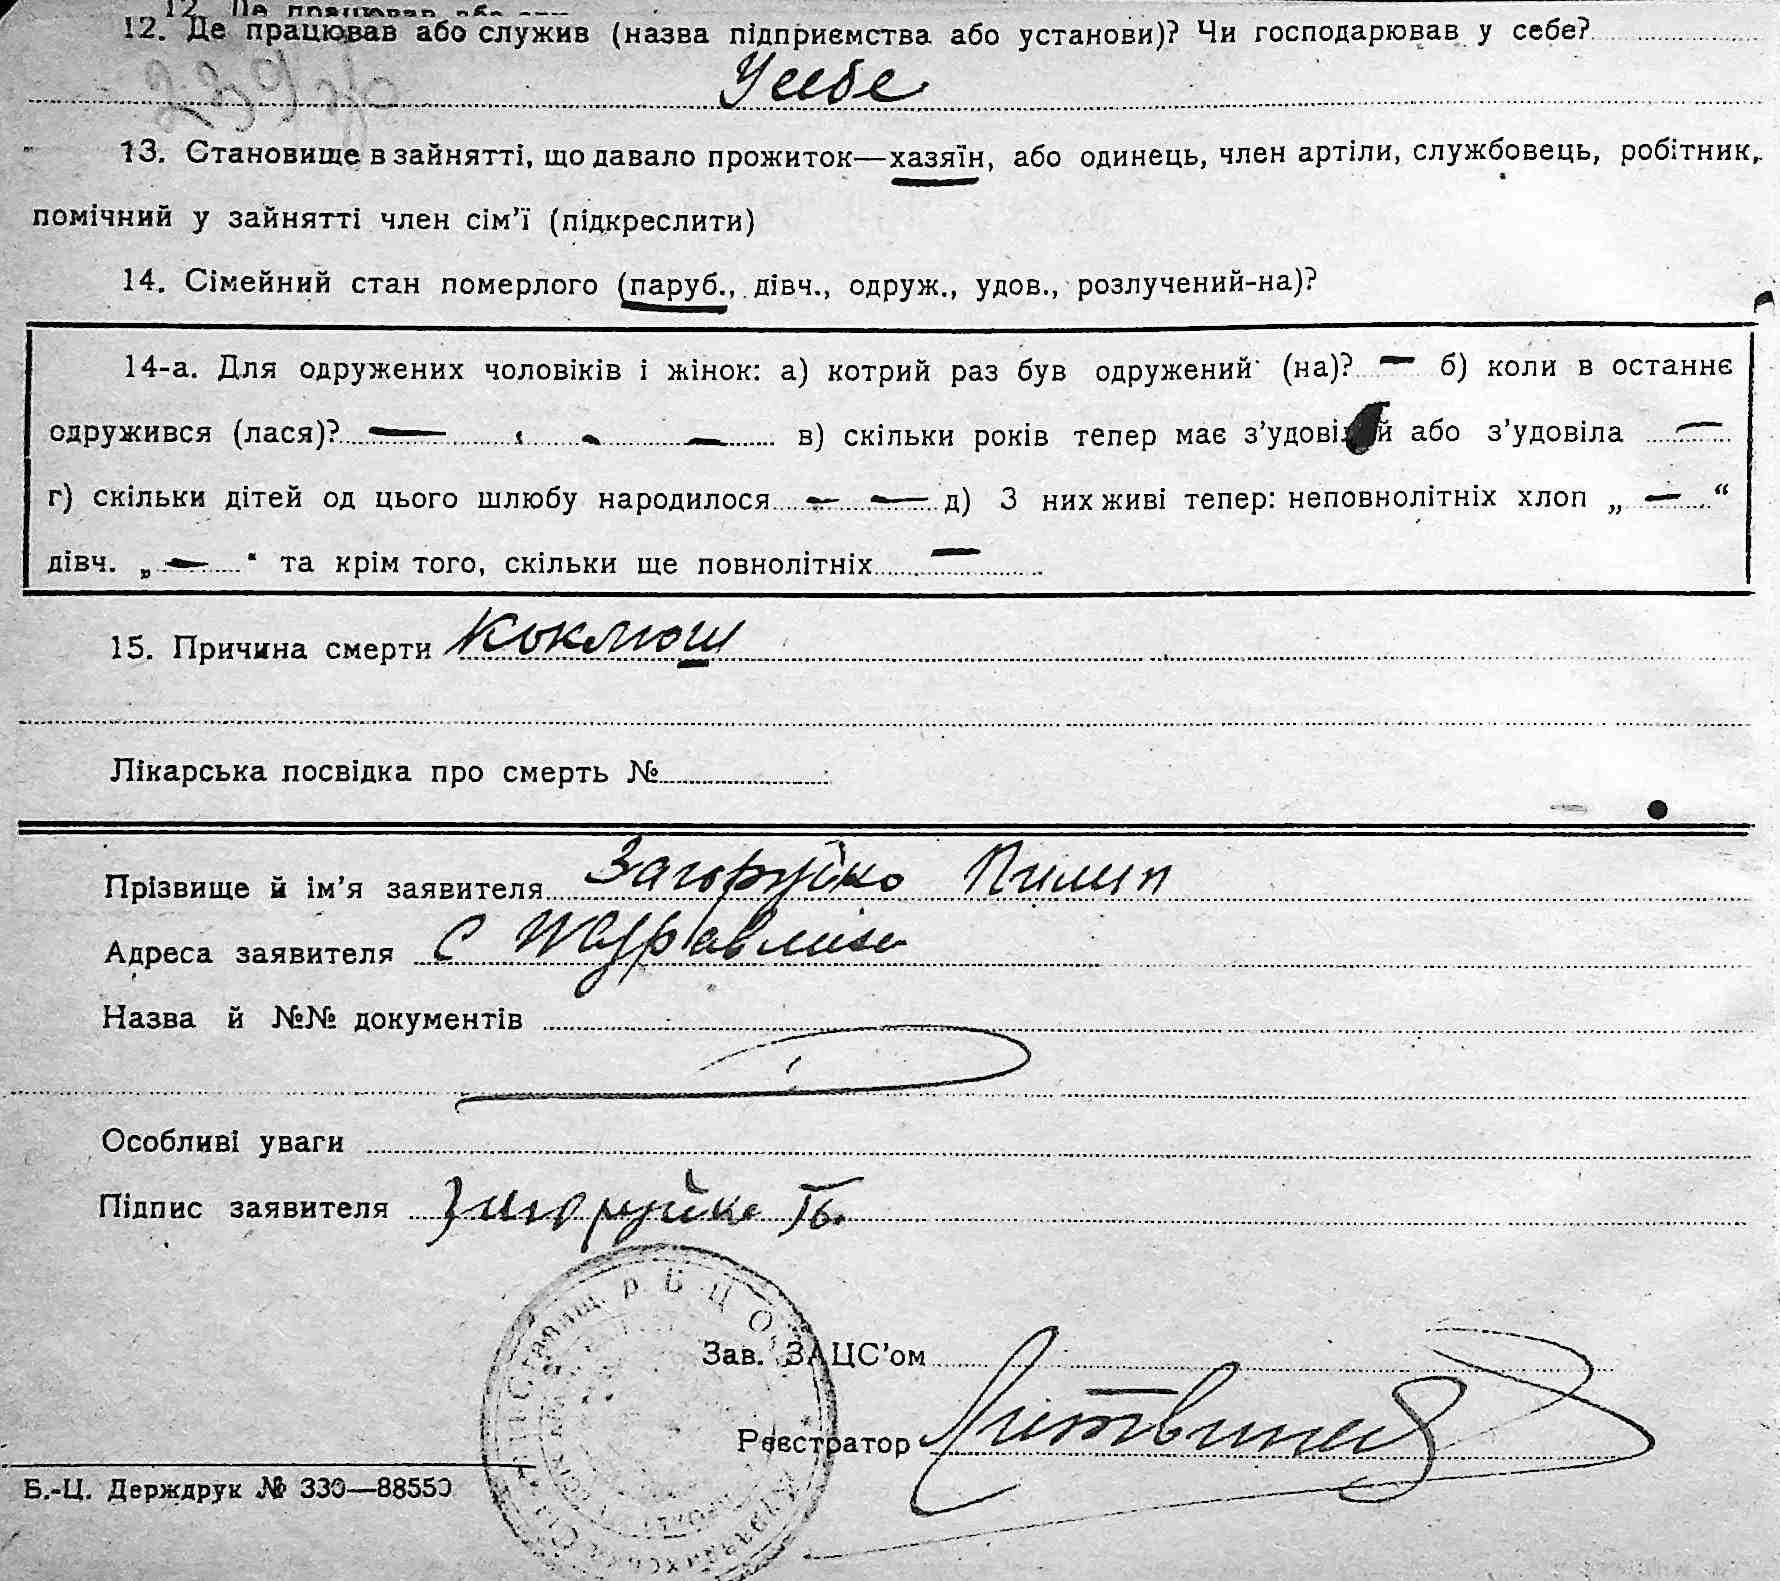 12. Де працював або служив (назва підприємства або установи)? Чи господарював у себе?
У себе
13. Становище в зайнятті, що давало прожиток—хазяїн, або одинець, член артіли, службовець, робітник,
помічний у зайнятті член сім’ї (підкреслити)
14. Сімейний стан померлого (паруб., дівч., одруж., удов., розлучений-на)?
14-а. Для одружених чоловіків і жінок: а) котрий раз був одружений (на)? — б) коли в останнє
одружився (лася)? — в) скільки років тепер має з’удовілий або з’удовіла —
г) скільки дітей од цього шлюбу народилося — — д) З них живі тепер: неповнолітніх хлоп „ — “
дівч. „ — “ та крім того, скільки ще повнолітніх —
15. Причина смерти Коклюш
Лікарська посвідка про смерть №
Прізвище й ім’я заявителя Загоруйко Пилип
Адреса заявителя с Журавлиха
Назва й №№ документів
Особливі уваги
Підпис заявителя Загоруйко
Зав. ЗАЦС’ом
Реєстратор
Б.-Ц. Держдрук № 330—88550